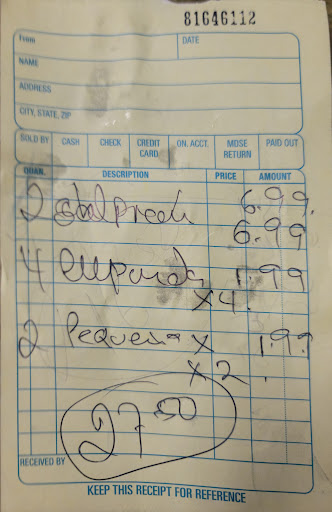 81646112
From
DATE
NAME
ADDRESS
CITY, STATE, ZIP
SOLD BY CASH CHECK CREDIT CARD ON. ACCT. MDSE RETURN PAID OUT
QUAN. DESCRIPTION PRICE AMOUNT
2 6.99
6.99
4 1.99
X4.
2 Pequeña X 1.99
X2.
27.50
RECEIVED BY
KEEP THIS RECEIPT FOR REFERENCE